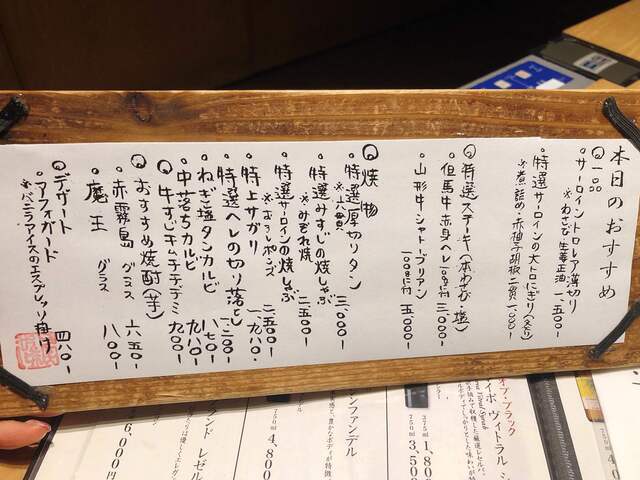 本日のおすすめ
◎一品
・サーロイントロレア薄切り 一、五〇〇-
※わさび生姜正油
・特選サーロインの大トロにぎり(炙り)
※煮詰め・赤柚子胡椒 二貫 一、〇〇〇-
◎特選ステーキ(本わさび・塩)
・但馬牛赤身ヘレ 100gに付 三、〇〇〇-
・山形牛シャトーブリアン
100gに付 五、〇〇〇-
◎焼物
・特選厚切りタン 三、〇〇〇-
※八貫
・特選みすじの焼しゃぶ
※みぞれ焼 二、五〇〇-
・特選サーロインの焼しゃぶ
※おろしポンズ 二、五〇〇-
・特上サガリ 一、九八〇-
・特選ヘレの切り落とし 一、二〇〇-
・ねぎ塩タンカルビ 八七〇-
・中落ちカルビ 九八〇-
・牛すじキムチチヂミ 九〇〇-
◎おすすめ焼酎(芋)
・赤霧島 グラス 六五〇-
・魔王 グラス 八〇〇-
◎デザート
・アフォガード 四八〇-
※バニラアイスのエスプレッソ掛け
オブ・ブラック
750ml 1,800
750ml 3,500
イボ ヴィトラル シ
ンファンデル
750ml 4,800
ランド レゼル
6,000円